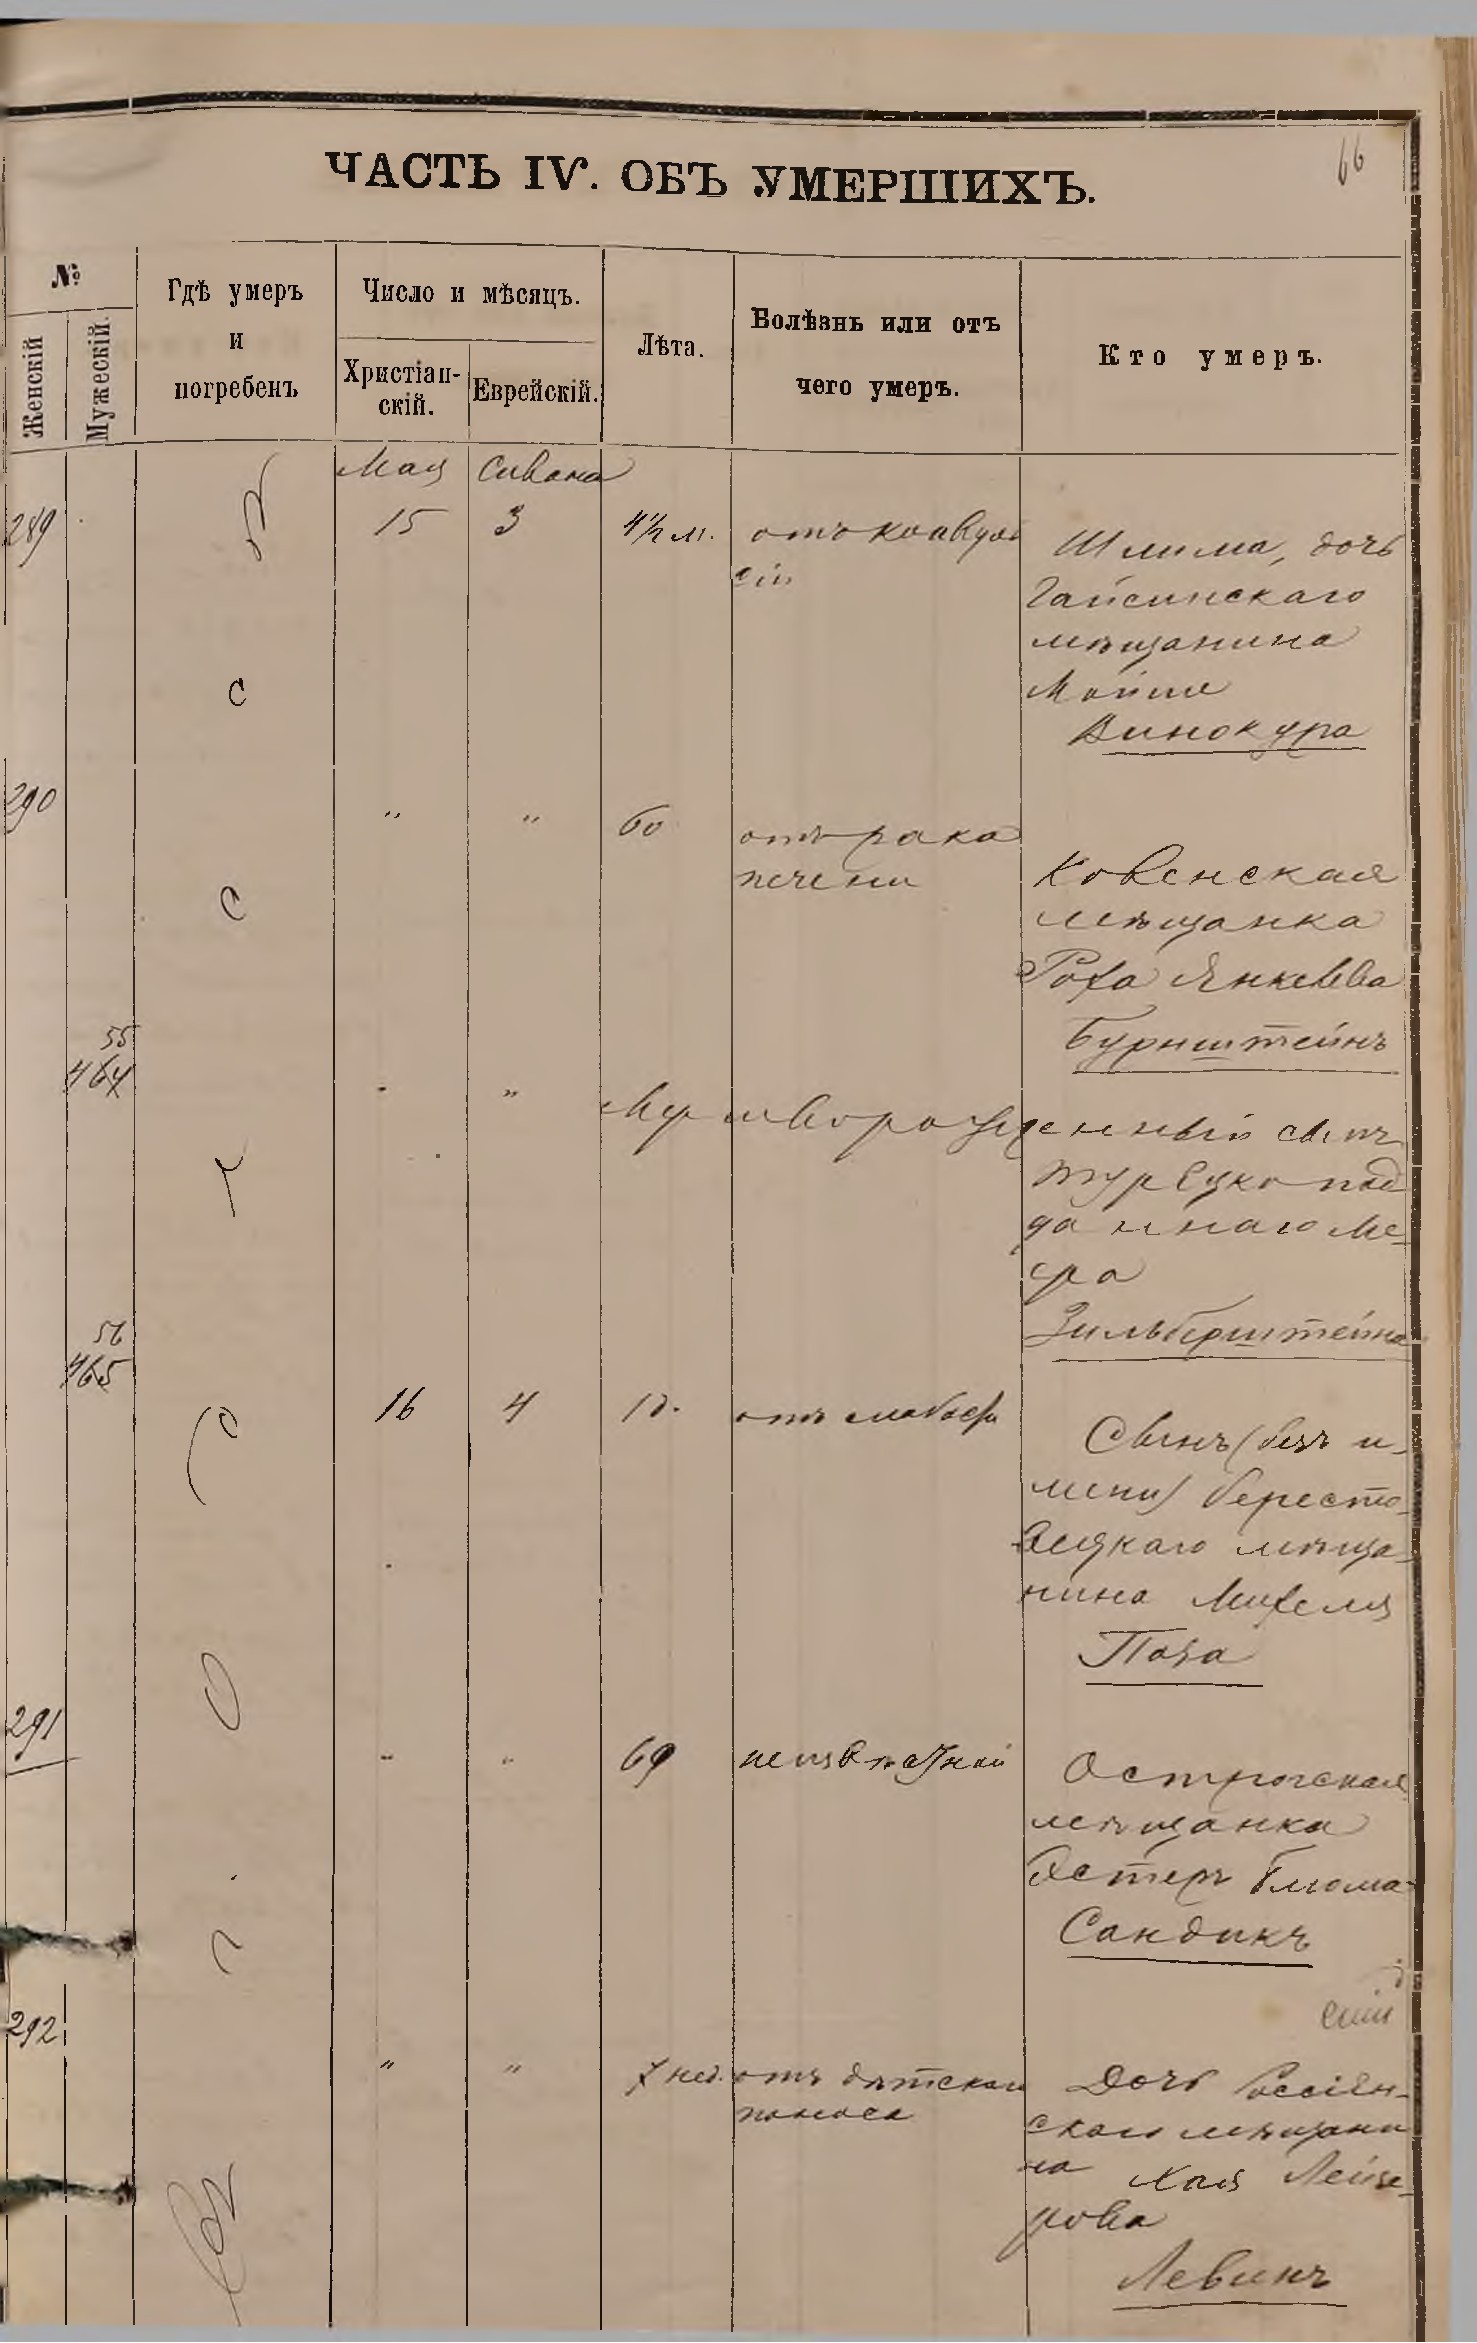 66
ЧАСТЬ IV. ОБЪ УМЕРШИХЪ.
№
Женскій
Мужескій.
Гдѣ умеръ
и
погребенъ
Число и мѣсяцъ.
Христіан-
скій.
Еврейскій.
Лѣта.
Болѣзнь или отъ
чего умеръ.
Кто умеръ.
Мая Сивана
289 15 3 4½ м. отъ конвуль
сій
Шлима, дочь
Гайсинскаго
мѣщанина
Мойше
Винокура
290 " " 60 отъ рака
печени
Ковенская
мѣщанка
Роха Янкелева
Бурнштейнъ
55
464 " " Мертворожденный сынъ
турецко под
да ннаго Ме-
ера
Зильберштейна
56
465
16 4 1 д. отъ слабости
Сынъ (безъ и-
мени) Бересто-
вецкаго мѣща-
нина Михеля
Поза
291 " " 69 неизвѣстной
Острогская
мѣщанка
Эстеръ Блюма
Сандикъ
292 " " 7 нед. отъ дѣтскаго
поноса
Дочь Россіен-
скаго мѣщани
на Хая Лейзе-
рова
Левинъ